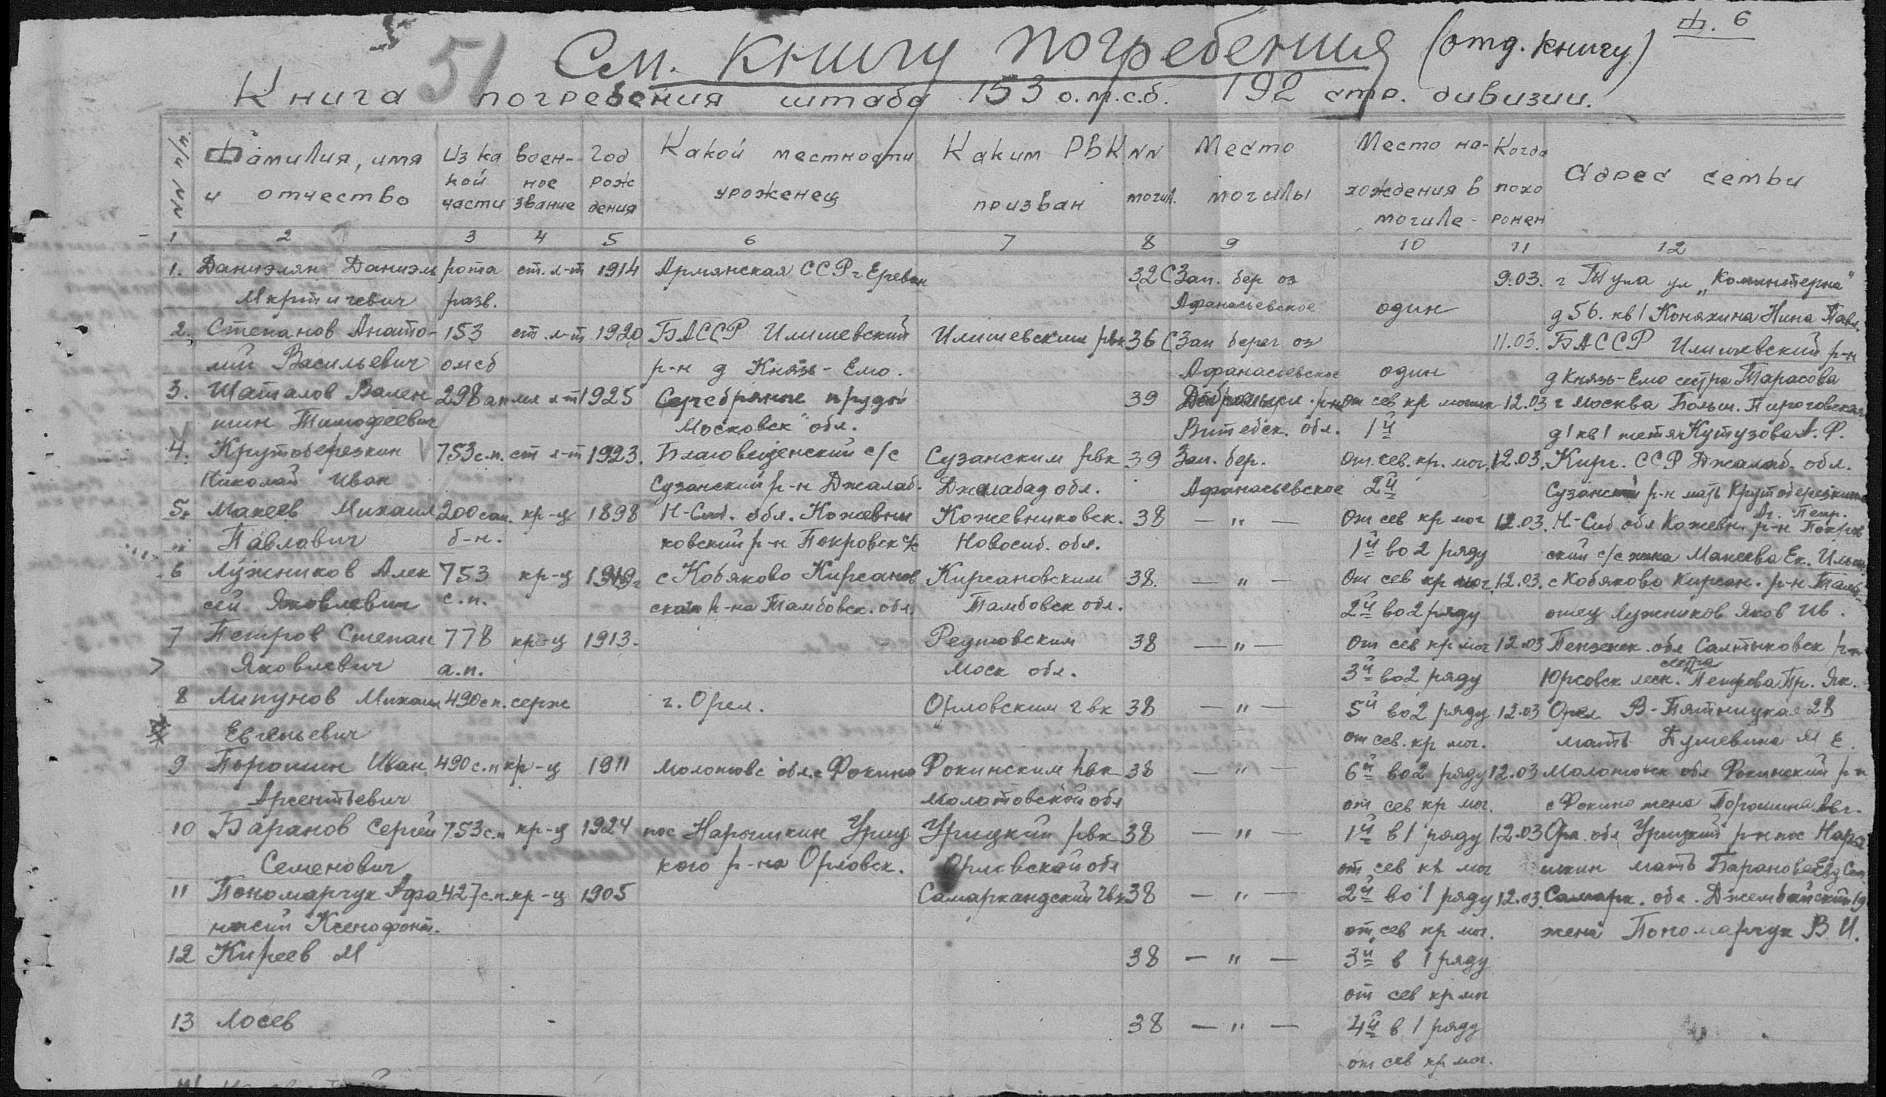 ф. 6
51 См. книгу погребения (отд. книгу)
Книга погребения штаба 153 о.м.с.б. 192 стр. дивизии.
NN п/п. Фамилия, имя и отчество Из ка кой части воен- ное звание Год рож дения Какой местности уроженец Каким РВК призван NN могил. Место могилы Место на- хождения в могиле- Когда похо ронен Адрес семьи
1 2 3 4 5 6 7 8 9 10 11 12
1. Даниэлян Даниэль рота ст. л-т 1914 Армянская ССР г Ереван 32 С Зап. бер оз 9.03. г Тула ул „Коминтерна"
Мкртичевич разв. Афанасьевское один д 56. кв 1 Коняхина Нина Павл.
2. Степанов Анато- 153 ст л-т 1920 БАССР Илишевский Илишевским рвк 36 С Зап берег оз 11.03. БАССР Илишевский р-н
лий Васильевич омсб р-н д Князь-Ело. Афанасьевское один д Князь-Ело сестра Тарасова
3. Шаталов Вален 298 ап мл л-т 1925 Серебряные пруды 39 р-на от сев кр могил 12.03 г Москва Больш. Пироговская
тин Тимофеевич Московск обл. Витебск. обл. 1й д 1 кв 1 тетя Кутузова А. Ф.
4. Крутоберезкин 753 с.п. ст л-т 1923. Благовещенский с/с Сузанским рвк 39 Зап. бер. от сев. кр. мог. 12.03. Кирг. ССР Джалаб. обл.
Николай Иван Сузанский р-н Джалаб. Джалабад обл. Афанасьевское 2й Сузанский р-н мать Крутоберезкина
5. Макеев Михаил 200 сап. кр-ц 1898 Н-Сиб. обл. Кожевни Кожевниковск. 38 — „ — От сев кр мог 12.03. Н-Сиб обл Кожевн. р-н Покров
Павлович б-н. ковский р-н Покровск с/с Новосиб. обл. 1й во 2 ряду ский с/с жена Макеева Ек.
6 Лужников Алек 753 кр-ц с Кобяково Кирсанов Кирсановским 38. — „ — От сев кр мог. 12.03. с Кобяково Кирсан. р-н Тамб.
сей Яковлевич с.п. ский р-на Тамбовск. обл. Тамбовск обл. 2й во 2 ряду отец Лужников Яков Ив.
7 Петров Степан 778 кр-ц 1913. Реутовским 38 — „ — От сев кр мог 12.03 Пензенск. обл Салтыковск р-н
Яковлевич а.п. Моск обл. 3й во 2 ряду Юрсовск леск. сестра Петрова Пр. Як.
8 Липунов Михаил 490 с.п. серж г. Орел. Орловским гвк 38 — „ — 5й во 2 ряду 12.03 Орел В-Пятницкая 28
Евгеньевич от сев. кр мог. мать М Е.
9 Порошин Иван 490 с.п кр-ц 1911 Молотовс обл. с Фокино Фокинским рвк 38 — „ — 6й во 2 ряду 12.03 Молотовск обл Фокинский р-н
Арсентьевич Молотовской обл от сев кр мог. с Фокино жена Порошина Авг.
10 Баранов Сергей 753 с.п кр-ц 1924 пос Нарышкин Уриц Урицкий рвк 38 — „ — 1й в 1 ряду 12.03 Орл. обл Урицкий р-н пос Нары
Семенович кого р-на Орловск. Орловской обл от сев кр мог шкин мать Баранова Евд Сем
11 Пономарчук Афа 427 с.п. кр-ц 1905 Самаркандский гвк 38 — „ — 2й во 1 ряду 12.03. Самарк. обл.
насий Ксенофонт. от сев кр мог. жена Пономарчук В И.
12 Киреев М 38 — „ — 3й в 1 ряду
от сев кр мог
13 Лосев 38 — „ — 4й в 1 ряду
от сев кр мог.